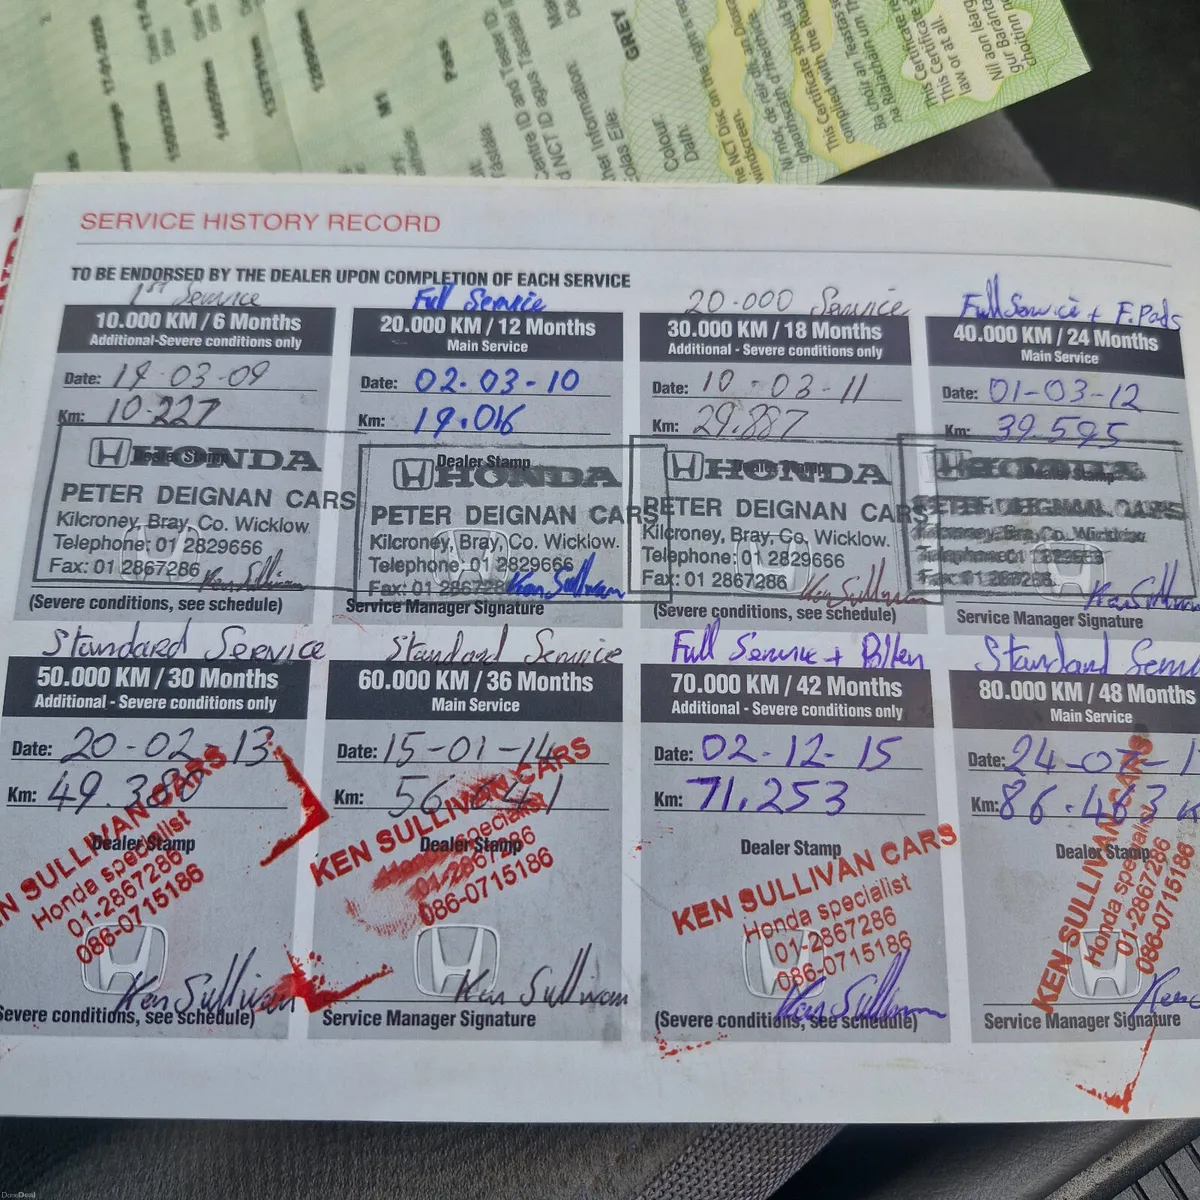 GREY
Pass
M1
Colour:
Dath:
SERVICE HISTORY RECORD
TO BE ENDORSED BY THE DEALER UPON COMPLETION OF EACH SERVICE
1st Service
10.000 KM / 6 Months
Additional-Severe conditions only
Date: 19-03-09
Km: 10-227
Dealer Stamp
HONDA
PETER DEIGNAN CARS
Kilcroney, Bray, Co. Wicklow.
Telephone: 01 2829666
Fax: 01 2867286
Ken Sullivan
(Severe conditions, see schedule)
Full Service
20.000 KM / 12 Months
Main Service
Date: 02-03-10
Km: 19.016
Dealer Stamp
HONDA
PETER DEIGNAN CARS
Kilcroney, Bray, Co. Wicklow.
Telephone: 01 2829666
Fax: 01 2867286
Ken Sullivan
Service Manager Signature
20.000 Service
30.000 KM / 18 Months
Additional - Severe conditions only
Date: 10-03-11
Km: 29.887
Dealer Stamp
HONDA
PETER DEIGNAN CARS
Kilcroney, Bray, Co. Wicklow.
Telephone: 01 2829666
Fax: 01 2867286
Ken Sullivan
(Severe conditions, see schedule)
Full Service + F.Pads
40.000 KM / 24 Months
Main Service
Date: 01-03-12
Km: 39.595
Dealer Stamp
HONDA
PETER DEIGNAN CARS
Kilcroney, Bray, Co. Wicklow.
Telephone: 01 2829666
Fax: 01 2867286
Ken Sullivan
Service Manager Signature
Standard Service
50.000 KM / 30 Months
Additional - Severe conditions only
Date: 20-02-13
Km: 49.380
Dealer Stamp
KEN SULLIVAN CARS
Honda specialist
01-2867286
086-0715186
Ken Sullivan
(Severe conditions, see schedule)
Standard Service
60.000 KM / 36 Months
Main Service
Date: 15-01-14
Km: 56.641
Dealer Stamp
KEN SULLIVAN CARS
specialist
01-2867286
086-0715186
Ken Sullivan
Service Manager Signature
Full Service + Pollen
70.000 KM / 42 Months
Additional - Severe conditions only
Date: 02-12-15
Km: 71.253
Dealer Stamp
KEN SULLIVAN CARS
Honda specialist
01-2867286
086-0715186
Ken Sullivan
(Severe conditions, see schedule)
Standard Serv
80.000 KM / 48 Months
Main Service
Date: 24-07-1
Km: 86.463 K
Dealer Stamp
KEN SULLIVAN CARS
Honda specialist
01-2867286
086-0715186
Service Manager Signature
DoneDeal